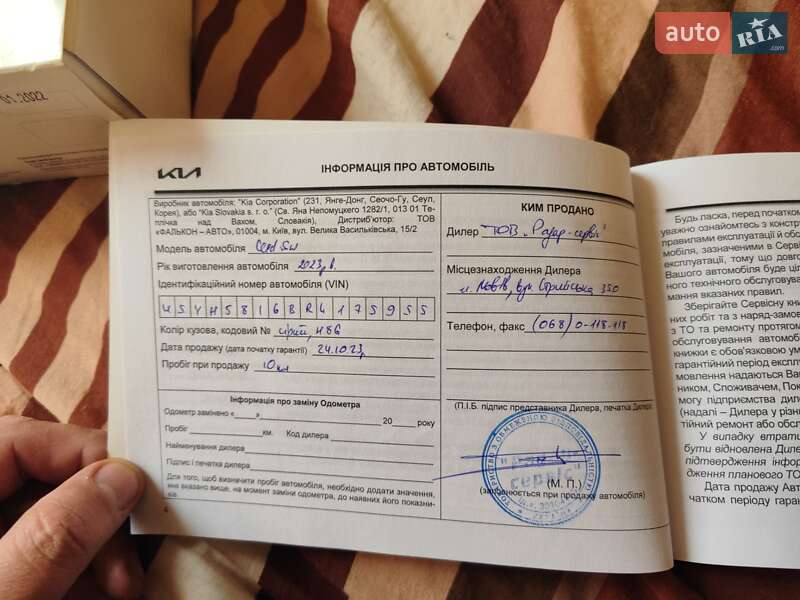 auto RIA.com
01.2022
KIA
ІНФОРМАЦІЯ ПРО АВТОМОБІЛЬ
Виробник автомобіля: "Kia Corporation" (231, Янге-Донг, Сеочо-Гу, Сеул,
Корея), або "Kia Slovakia s. r. o." (Св. Яна Непомуцкего 1282/1, 013 01 Те-
плічка над Вахом, Словакія), Дистриб'ютор: ТОВ
«ФАЛЬКОН – АВТО», 01004, м. Київ, вул. Велика Васильківська, 15/2
Модель автомобіля Ceed SW
Рік виготовлення автомобіля 2023р.
Ідентифікаційний номер автомобіля (VIN)
U5YH5816BRL175955
Колір кузова, кодовий № сірий, H8G
Дата продажу (дата початку гарантії) 24.10.23
Пробіг при продажу 10 км
Інформація про заміну Одометра
Одометр замінено «____» 20____ року
Пробіг км. Код дилера
Найменування дилера
Підпис і печатка дилера
Для того, щоб визначити пробіг автомобіля, необхідно додати значення,
яке вказано вище, на момент заміни одометра, до наявних його показни-
ків.
4
КИМ ПРОДАНО
Дилер ТОВ
Місцезнаходження Дилера
м. Львів, вул. Стрийська 350
Телефон, факс (068) 0-118-118
(П.І.Б. підпис представника Дилера, печатка Дилера)
сервіс
(М. П.)
(заповнюється при продажу автомобіля)
Будь ласка, перед початком
уважно ознайомтесь з констр
правилами експлуатації й обс
мобіля, зазначеними в Серві
експлуатації, тому що довго
Вашого автомобіля буде ціл
ного технічного обслуговуван
мання вказаних правил.
Зберігайте Сервісну кни
них робіт та з наряд-замов
з ТО та ремонту протягом
обслуговування автомобі
книжки є обов'язковою ум
гарантійний період експл
мовлення надаються Ваш
ником, Споживачем, Пок
могу підприємства дил
(надалі – Дилера у різні
тійний ремонт або обсл
У випадку втрати
бути відновлена Диле
підтвердження інфор
дження планового ТО
Дата продажу Авт
чатком періоду гаран